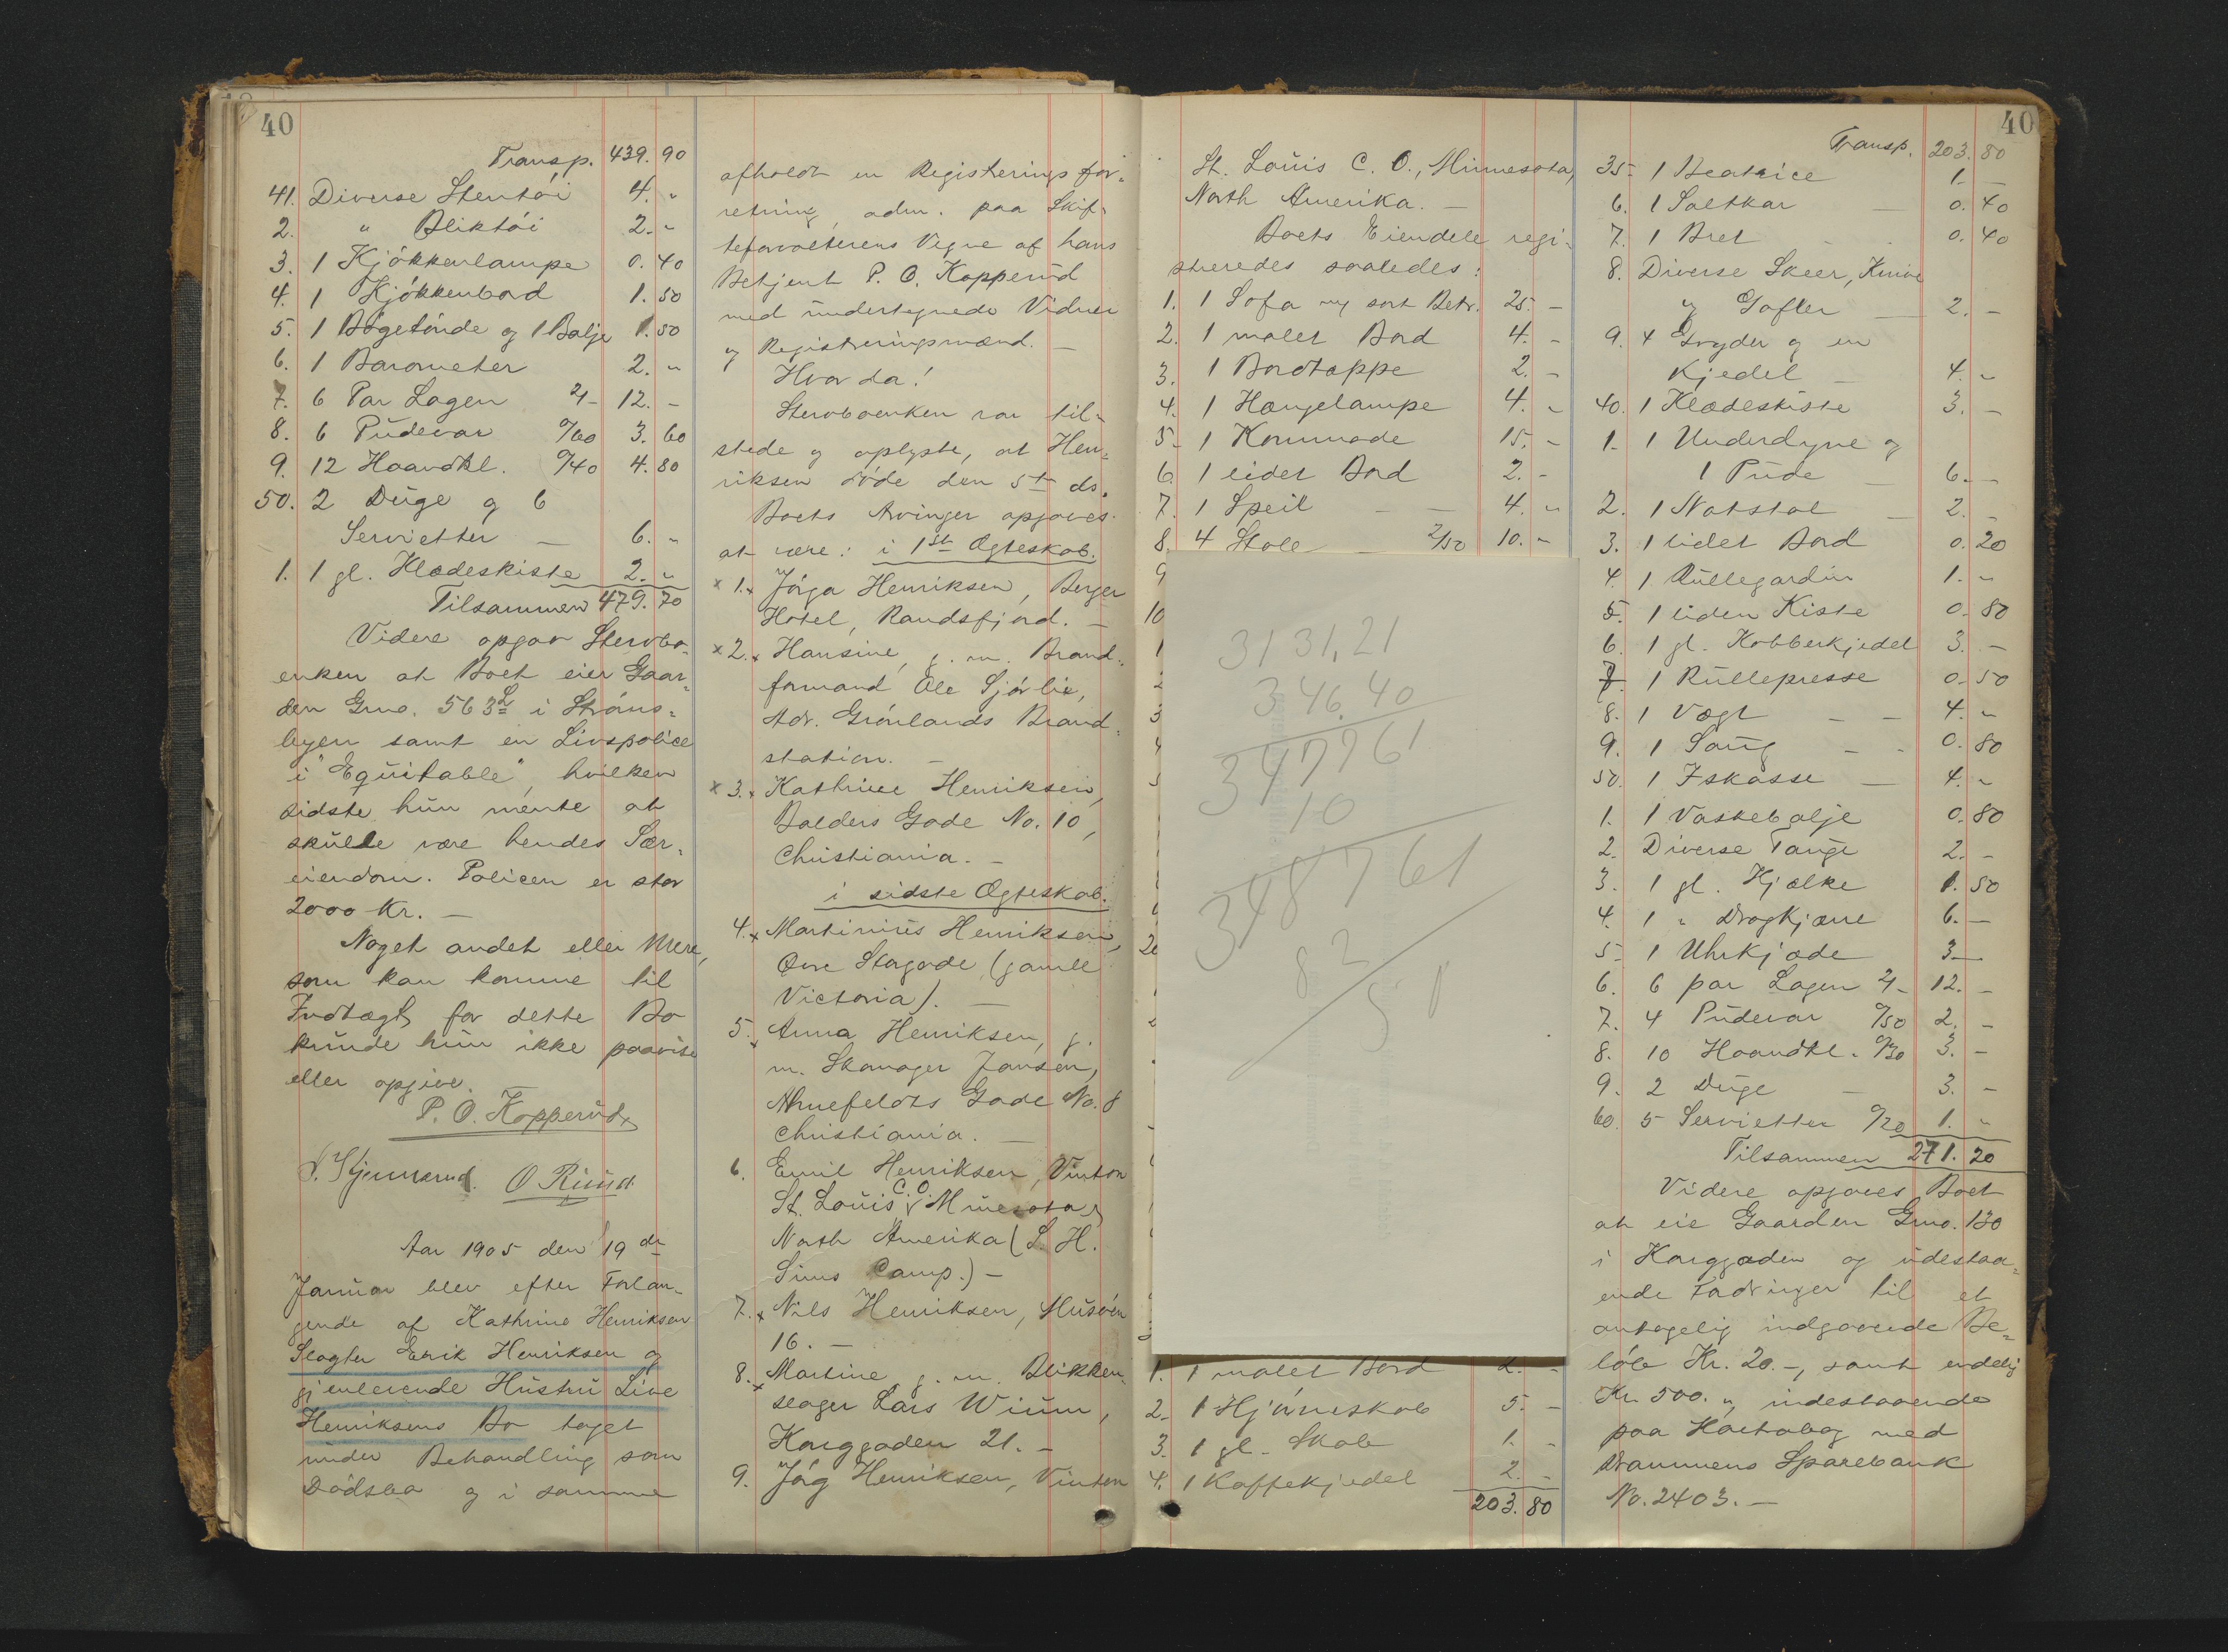 40
Transp. 439. 90
41. Diverse Stentöi 4. "
2. " Bliktöi 2. "
3. 1 Kjökkenlampe 0. 40
4. 1 Kjökkenbord 1. 50
5. 1 Bögetönde og 1 Balje 1. 50
6. 1 Barometer 2. "
7. 6 Par Lagen 2/- 12. -
8. 6 Pudevar 0/60 3. 60
9. 12 Haandkl. 0/40 4. 80
50. 2 Duge og 6
Servietter - 6. "
1. 1 gl. Klædeskiste 2. "
Tilsammen 479. 70
Videre opgav Stervbo-
enken at Boet eier Gaar-
den Grno. 563 L i Ströms-
legen samt en Livspolice
i "Equitable", hvilken
sidste hun mente at
skulle være hendes Sær-
eiendom. Policen er stor
2000 Kr. -
Noget andet eller mere,
som kan komme til
Indtægt for dette Bo
kunde hun ikke paavise
eller opgive.
P. O. Kopperud
O Ruud.
Aar 1905 den 19 de
Januar blev efter Forlan-
gende af Kathrine Henriksen
Slagter Erik Henriksen og
gjenlevende Hustru Live
Henriksens Bo taget
under Behandling som
Dödsbo og i samme
afholdt en Registerings for-
retning, adm. paa Skif-
teforvalterens Vegne af hans
Betjent P. O. Kopperud
med undertegnede Vidner
og Registreringsmænd. -
Hvor da!
Stervboenken var til-
stede og oplyste, at Hen-
riksen döde den 5te ds.
Boets Arvinger opgaves
at være: i 1ste Ægteskab.
x 1.x Jörga Henriksen, Berger
Hotel, Randsfjord. -
x 2.x Hansine, g. m. Brand-
formand Ole Sjörlie,
Adr. Grönlands Brand-
station. -
x 3.x Kathrine Henriksen,
Balders Gade No. 10,
Christiania. -
i sidste Ægteskab.
4.x Martinius Henriksen,
Övre Storgade (gamle
Victoria). -
5.x Anna Henriksen, g.
m. Skomager Jansen,
Ahnefeldts Gade No. 8
Christiania. -
6. Emil Henriksen, Vinton
St. Louis C. O. Minesota,
North Amerika (L. H.
Sims Camp.) -
7.x Nils Henriksen, Husöen
16. -
8.x Martine g. m. Blikken-
slager Lars Wium,
Konggaden 21. -
9. Jörg Henriksen, Vinton
St. Louis C. O., Minnesota,
North Amerika. -
Boets Eiendele regi-
streredes saaledes:
1. 1 Sofa m/ sort Betr. 25. -
2. 1 malet Bord 4. -
3. 1 Bordtæppe 2. -
4. 1 Hængelampe 4. "
5. 1 Kommode 15. -
6. 1 lidet Bord 2. -
7. 1 Speil - - 4. "
8. 4 Stole - 2/50 10. "
9
10
1
2
3
4
5
20
3131,21
346,40
347761
10
348761
82
1. 1 malet Bord 2. -
2. 1 Hjörneskab 5. -
3. 1 gl. Skab 1. -
4. 1 Kaffekjedel 2. -
203. 80
40
Transp. 203. 80
35. 1 Beatrice 1. -
6. 1 Saltkar - 0. 40
7. 1 Bret - 0. 40
8. Diverse Skeer, Knive
og Gafler - 2. -
9. 4 Gryder og en
Kjedel - 4. "
40. 1 Klædeskiste 3. -
1. 1 Underdyne og
1 Pude - 6. -
2. 1 Natstol - 2. -
3. 1 lidet Bord 0. 20
4. 1 Rullegardin 1. "
5. 1 liden Kiste 0. 80
6. 1 gl. Kobberkjedel 3. -
7. 1 Rullepresse 0. 50
8. 1 Vægt - - 4. "
9. 1 Saug - - 0. 80
50. 1 Iskasse - 4. "
1. 1 Vaskebalje 0. 80
2. Diverse Tauge 2. -
3. 1 gl. Kjælke 1. 50
4. 1 " Dragkjærre 6. -
5. 1 Uhrkjæde 3. -
6. 6 par Lagen 2/- 12. -
7. 4 Pudevar 0/50 2. -
8. 10 Haandkl. 0/30 3. -
9. 2 Duge - 3. -
60. 5 Servietter 0/20 1. "
Tilsammen 271. 20
Videre opgaves Boet
at eie Gaarden Grno. 130
i Konggaden og udestaa-
ende Fordringer til et
antagelig indgaaende Be-
löb Kr. 20. -, samt endelig
Kr. 500. ", indestaaende
paa Kontobog med
Drammens Sparebank
No. 2403. -